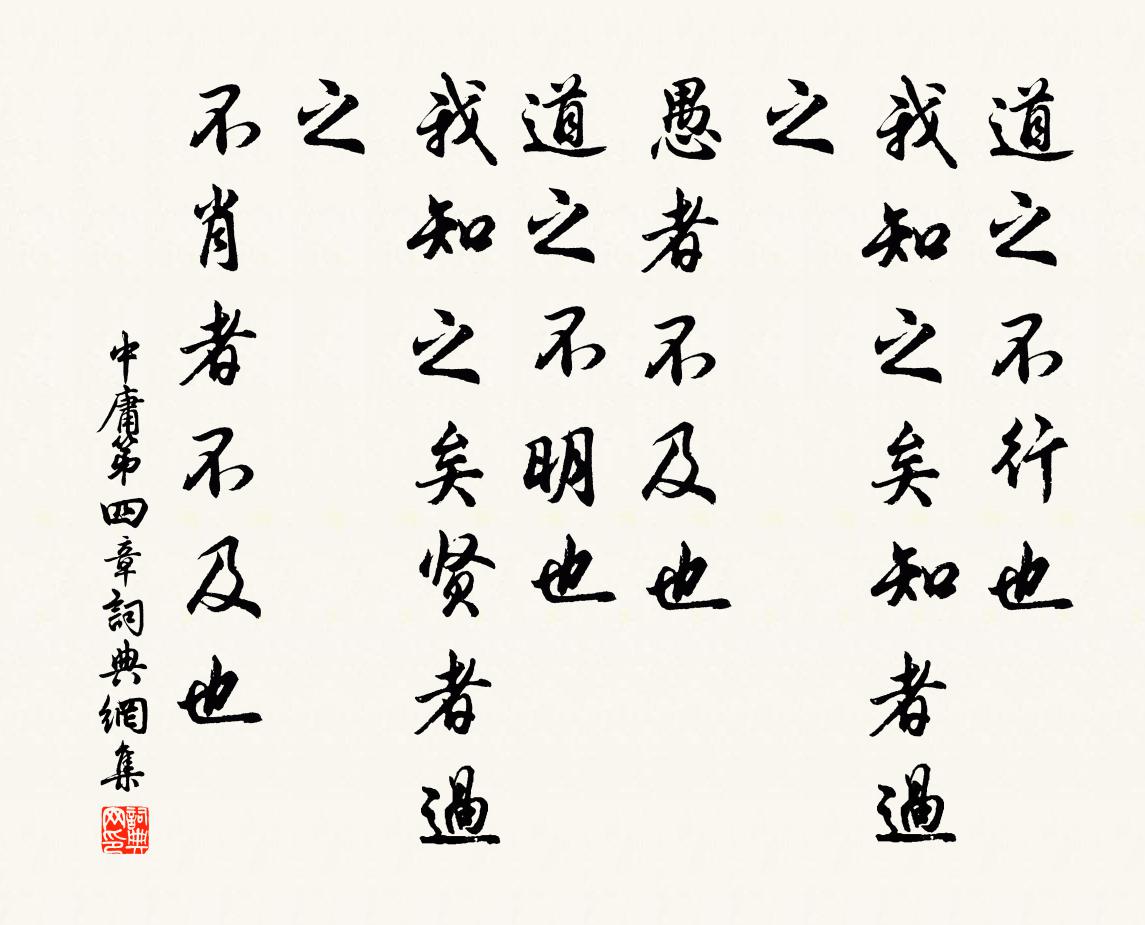 道之不行也
我知之矣知者過
之
愚者不及也
道之不明也
我知之矣贤者過
之
不肖者不及也
中庸第四章詞典網集
詞典
网印